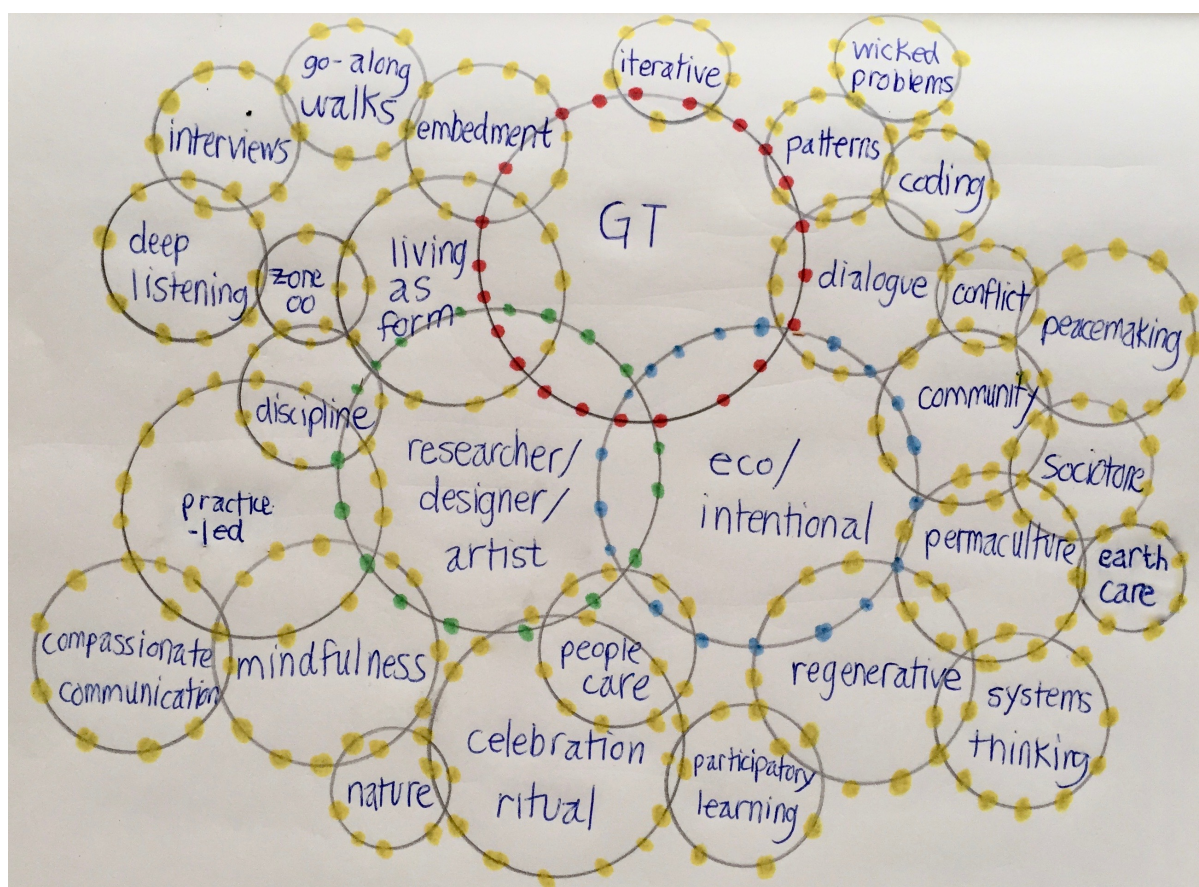 go-along
walks
iterative
wicked
problems
interviews
embedment
patterns
coding
GT
deep
listening
zone
00
living
as
form
dialogue
conflict
peacemaking
discipline
community
researcher/
designer/
artist
eco/
intentional
sociotone
practice
-led
permaculture
earth
care
compassionate
communication
mindfulness
people
care
regenerative
systems
thinking
celebration
ritual
nature
participatory
learning